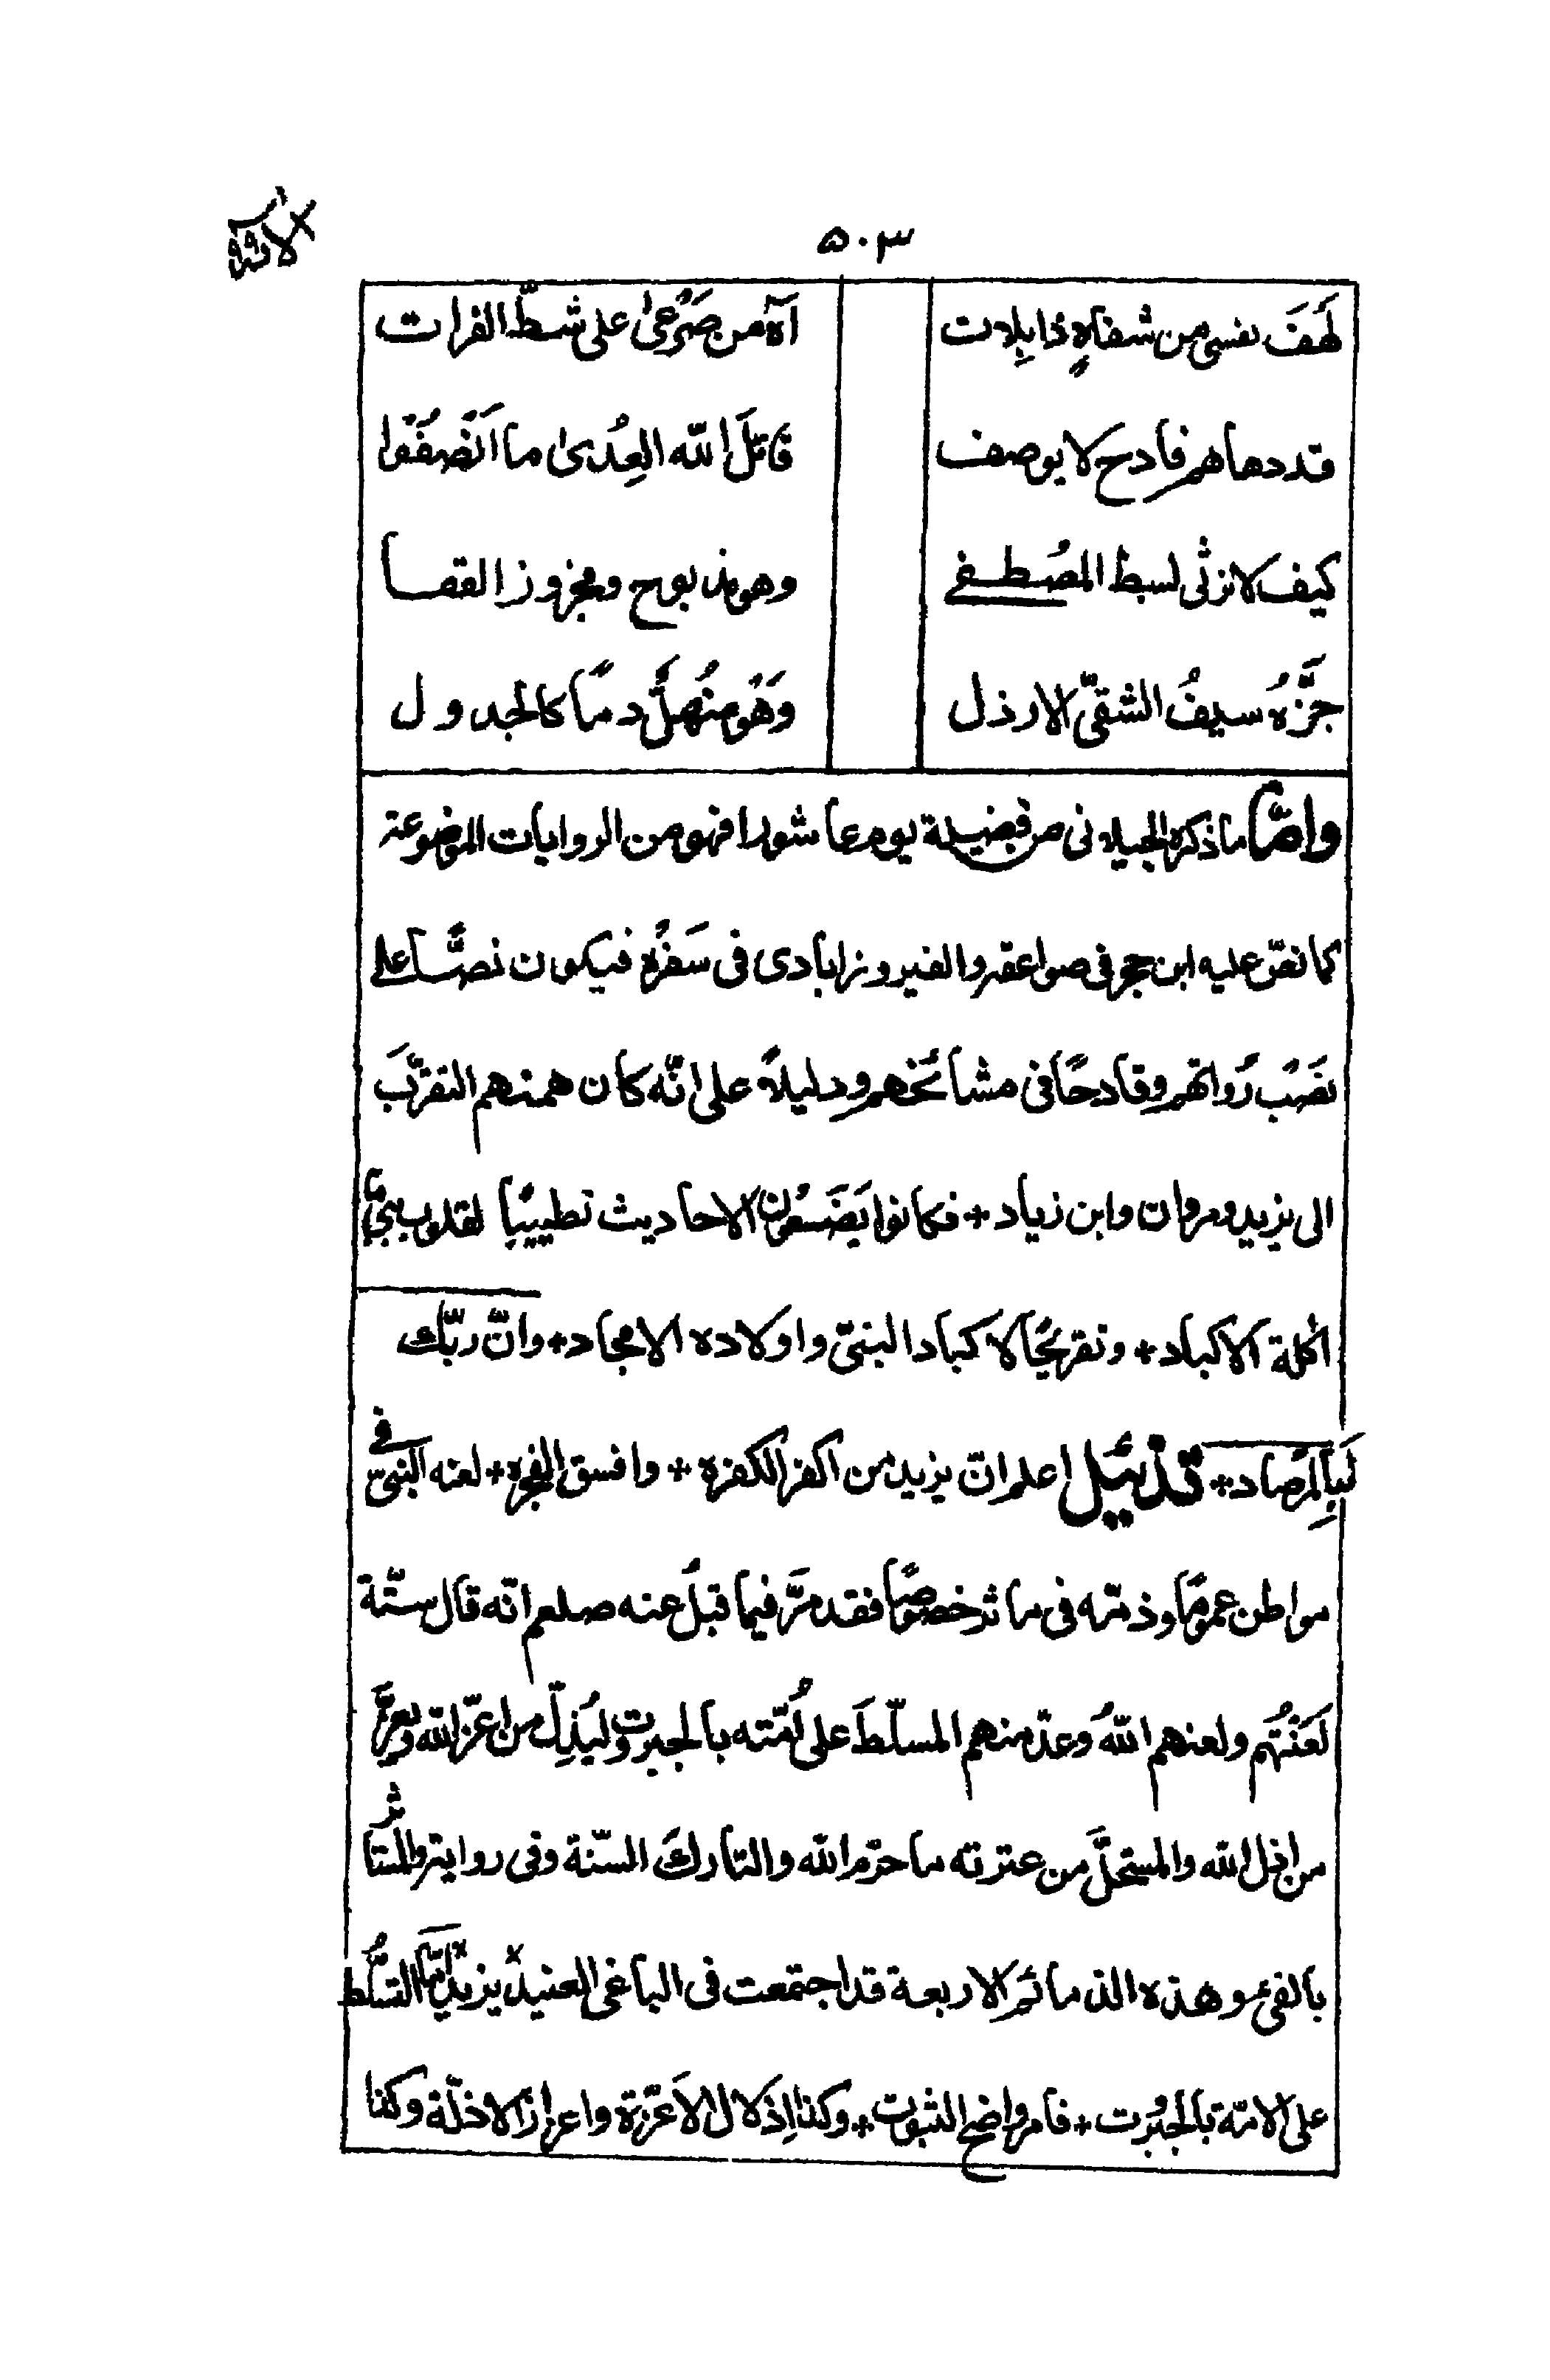 ٥٠٣
لَهَفَ نفسى من شفاهٍ ذابِلات آهٌ من صَرْعىٰ على شطّ الفرات
قد دهاهم فادح لا يوصف قاتَلَ الله العِدىٰ ما اَنْصَفُوْا
كيف لا نرثى لسبط المُصْطفى وهو مذبوح ومجزوز القفا
جَزَّهُ سيفُ الشقىّ الارذل وَهُوَ منُهلٌّ دمًا كالجدول
وامّا ما ذكره الجيلانى من فضيلة يوم عاشورا فهو من الروايات الموضوعة
كما نصّ عليه ابن حجر فى صواعقه والفيروزابادى فى سَفْرِه فيكون نصًّا على
نَصْب رُواتهم وقادحًا فى مشائخهم ودليلاً على انّه كان همهم التقرّبَ
الى يزيد ومروان وابن زياد + فكانوا يَضَعُون الاحاديث تطييبًا لقلوب بنى
اٰكلة الاكباد + وتقريحًا لاكباد النبىّ واولاده الامجاد + وانّ ربّك
لَبِالمِرْصاد + تذئيل اعلم انّ يزيد من اكفر الكفرة + وافسق الفجرة + لعنه النبى ص فى
مواطن عمومًا وذمّه فى مآثر خصوصًا فقد مَرَّ فيما قبلُ عنه صلعم انّه قال ستّة
لَعَنْتُهم ولعنهم اللهُ وعدّ منهم المسلّطَ على اُمّته بالجبروت ليُذِلّ من اعزّ الله ويعزَّ
من اذلّ الله والمستحلَّ من عترته ما حرّم الله والتارك السّنة وفى رواية والمستأثر
بالفئ وهذه الذمائم الاربعة قد اجتمعت فى الباغى العنيد يزيد امّا التسلُّط
على الامّة بالجبروت + فامر واضح الثبوت + وكذا اِذلال الاَعزّة واعزاز الاذلّة وكذا